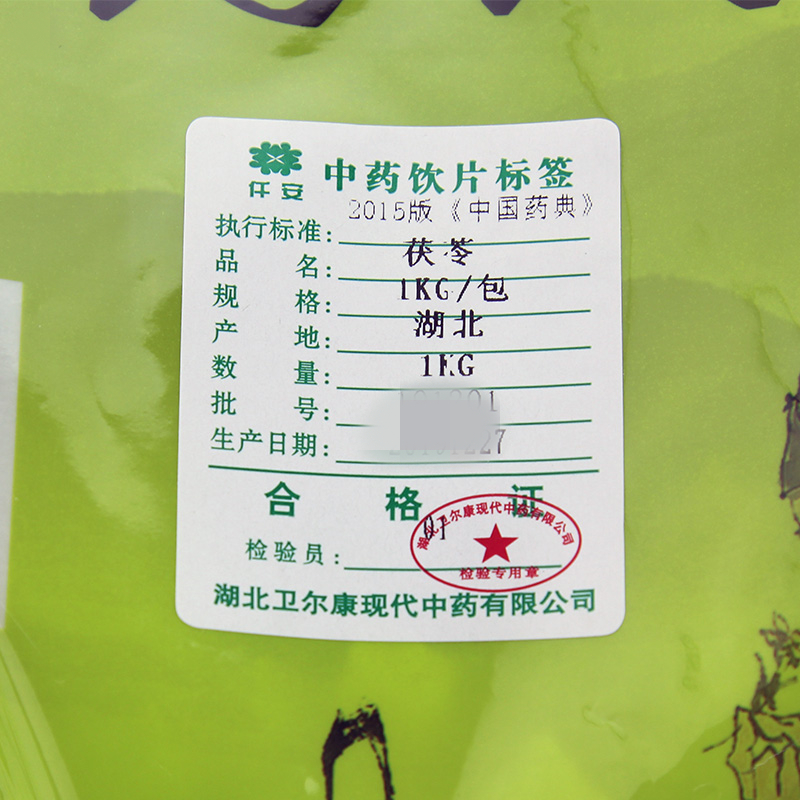 仟安
中药饮片标签
执行标准: 2015版《中国药典》
品名: 茯苓
规格: 1KG/包
产地: 湖北
数量: 1KG
批号:
生产日期:
合格证
检验员: 01
湖北卫尔康现代中药有限公司
检验专用章
湖北卫尔康现代中药有限公司